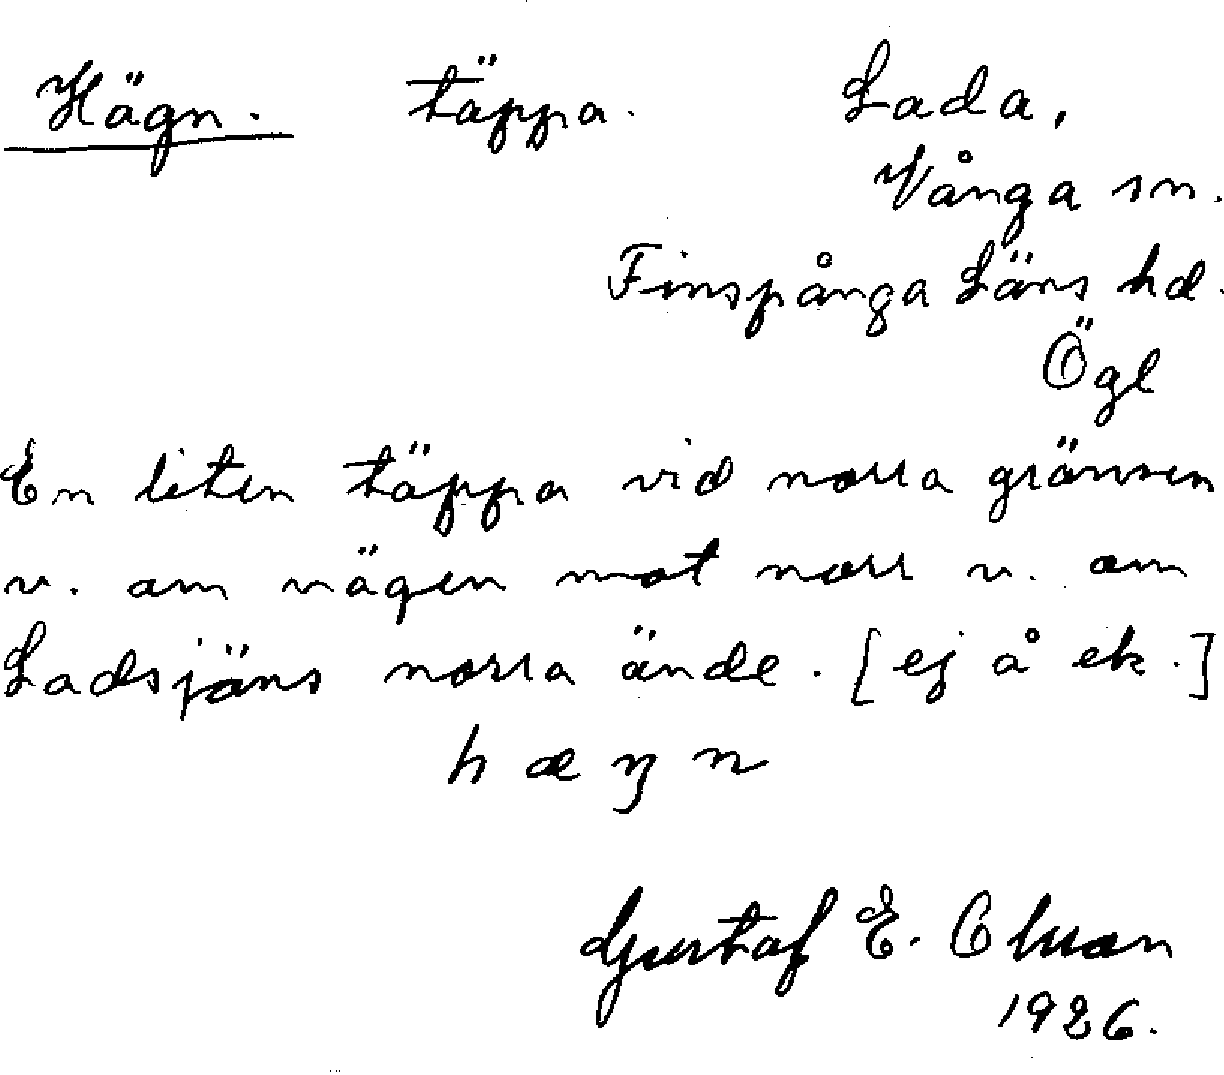 Hägn. täppa. Lada,
Vånga sn.
Finspånga Läns hd.
Ögl
En liten täppa vid norra gränsen
v. om vägen mot norr v. om
Ladsjöns norra ände. [ej å ek.]
hæŋn
Gustaf E. Olsson
1926.